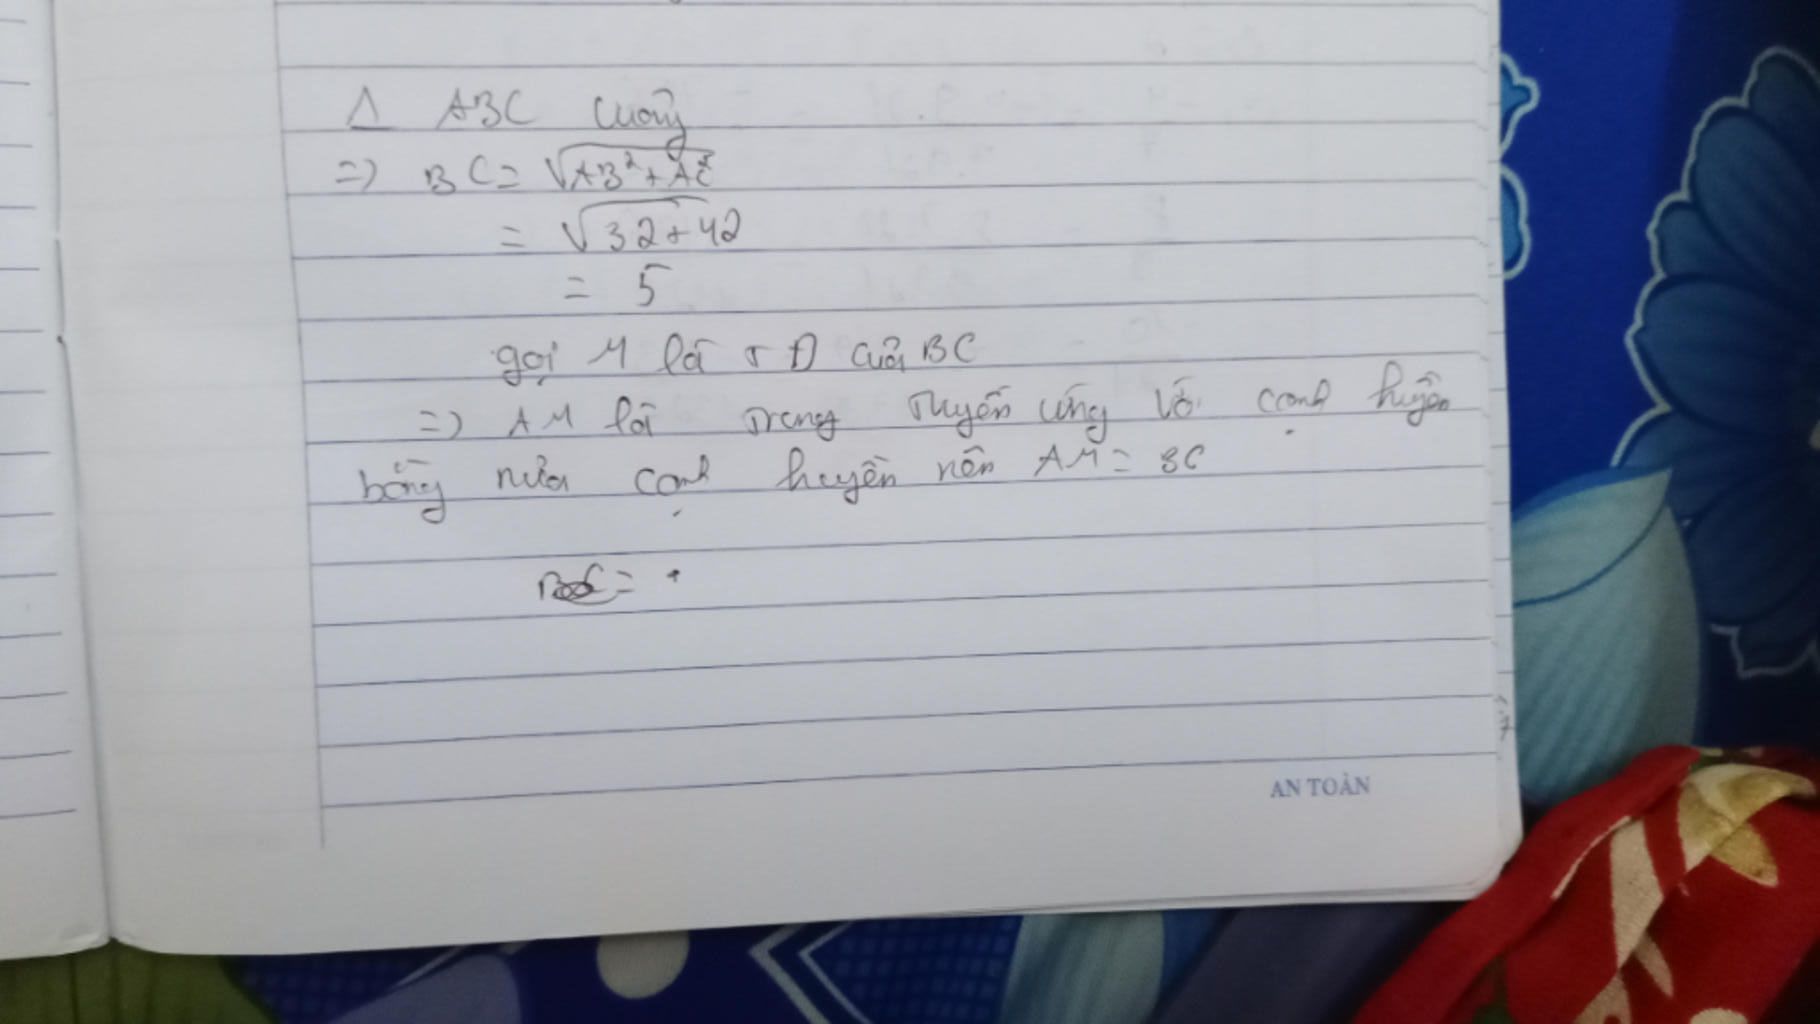 Δ ABC vuông
=> BC = √AB² + AC²
= √32 + 42
= 5
gọi M là TĐ của BC
=> AM là trung tuyến ứng với cạnh huyền
bằng nửa cạnh huyền nên AM = BC
AN TOÀN